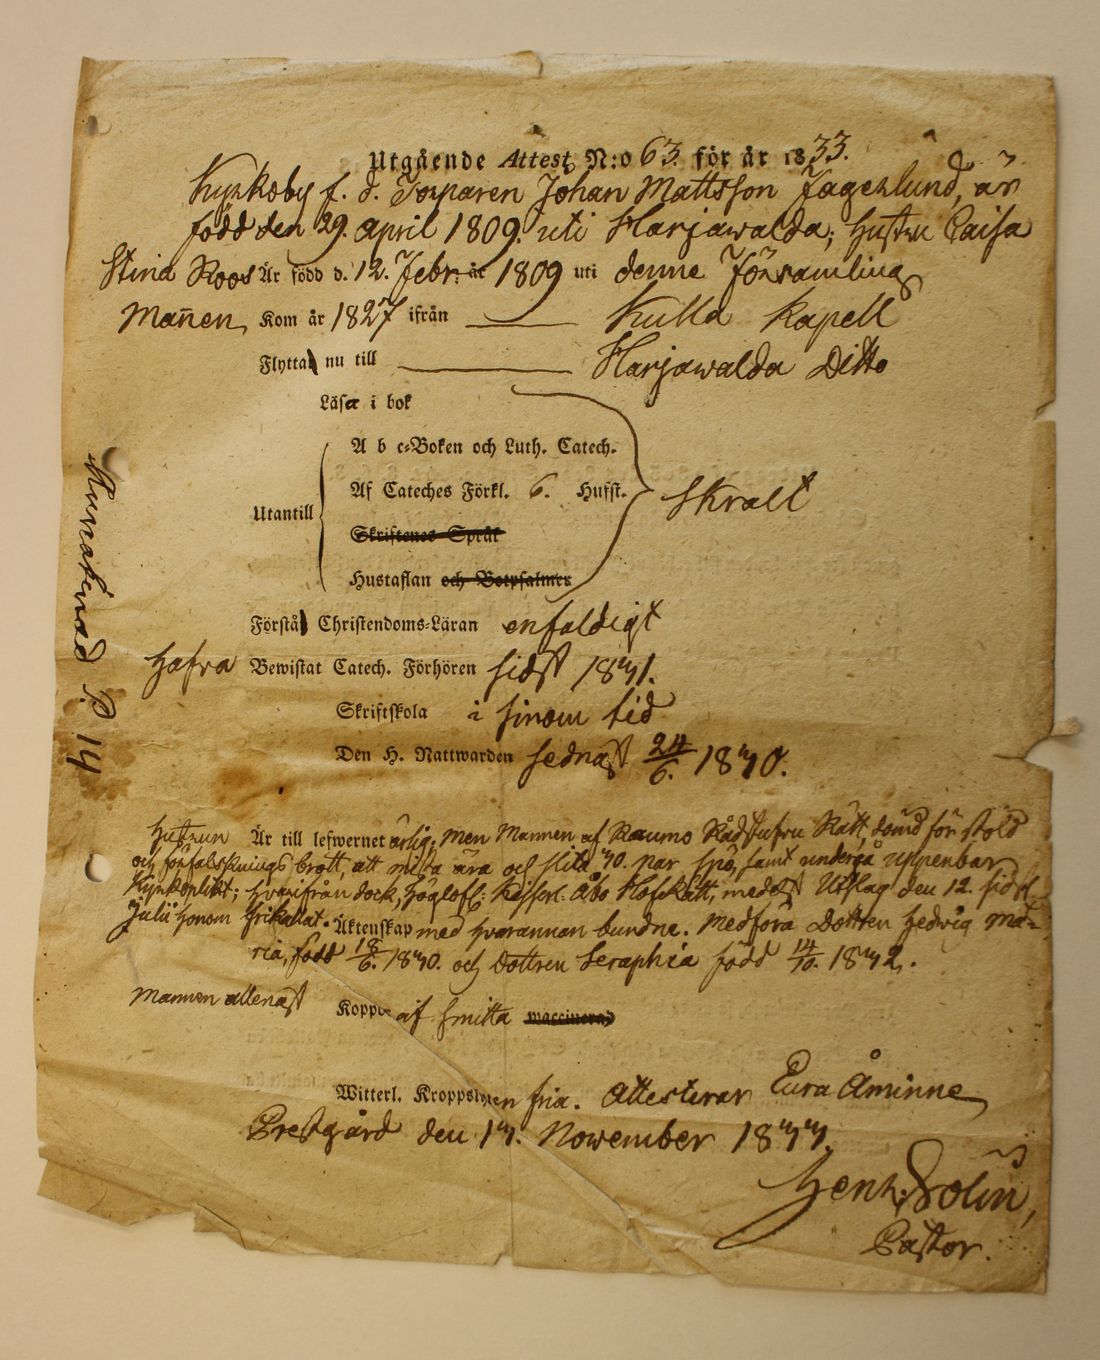 Utgående Attest N:o 63. för år 1833.
Kyrkoby f. d. Torparen Johan Mattsson Fagerlund, är
född den 29. april 1809. uti Harjawalda; hustru Caisa
Stina Roos Är född d. 12. Febr: år 1809 uti denne Församling
Mañen Kom år 1827 ifrån Kulla Kapell
Flytta nu till Harjawalda Ditto
Läsa i bok
A b c-Boken och Luth. Catech.
Af Cateches Förkl. 6. Hufst. Skralt
Utantill
Skriftenes Språk
Hustaflan och Botpsalmer
Förstå Christendoms-Läran enfaldigt
hafva Bewistat Catech. Förhören sidst 1841.
Skriftskola i sinom tid
Den H. Nattwarden sednast 24/6. 1840.
P. 14
hustrun Är till lefwernet ärlig, men Mannen af Raumo Rådstufvu Rätt, dömd för stöld
och förfalsknings brott, att mista ära och slita 40. par spö, samt undergå uppenbar
Kyrkoplikt; hvarifrån dock, höglofl: Kejserl. Åbo HofRätt, medelst Utslag den 12. sidstl.
Julii honom frikallat. Äktenskap med hvarannan bundne. Medföra Dottren Hedvig Ma-
ria, född 18/6. 1840. och Dottren Seraphia född 14/10. 1842.
Mannen allenast Koppor af smitta waccinerad
Witterl. Kroppslyten fria. Attesterar Eura Åminne
Prestgård den 14. November 1844.
Henr: Solin,
Pastor.